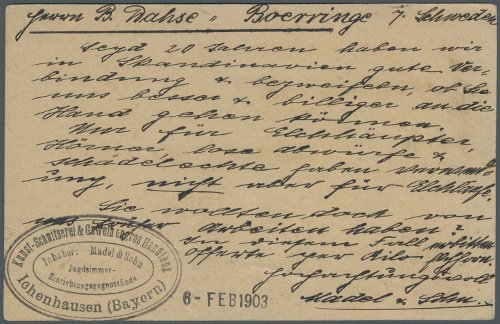 Herrn B. Dahse, Boerringe i/ Schweden
Seyd 20 Jahren haben wir
in Skandinavien gute Ver-
bindung & bezweifeln, ob Sie
uns besser & billiger an die
Hand gehen können.
Nur für Elchhäupter,
Hörner lose Abwürfe &
schädelechte haben Verwend-
ung, nicht aber für Elchläufe.
Sie wollten doch von
uns früher Arbeiten haben?
In diesem Fall erbitten
Offerte per Kilo
hochachtungsvoll
Madel & Sohn.
Kunst-Schnitzerei & Geweih en gros Handlung
Inhaber: Madel & Sohn
Jagdzimmer-
Einrichtungsgegenstände
Ichenhausen (Bayern)
6- FEB 1903